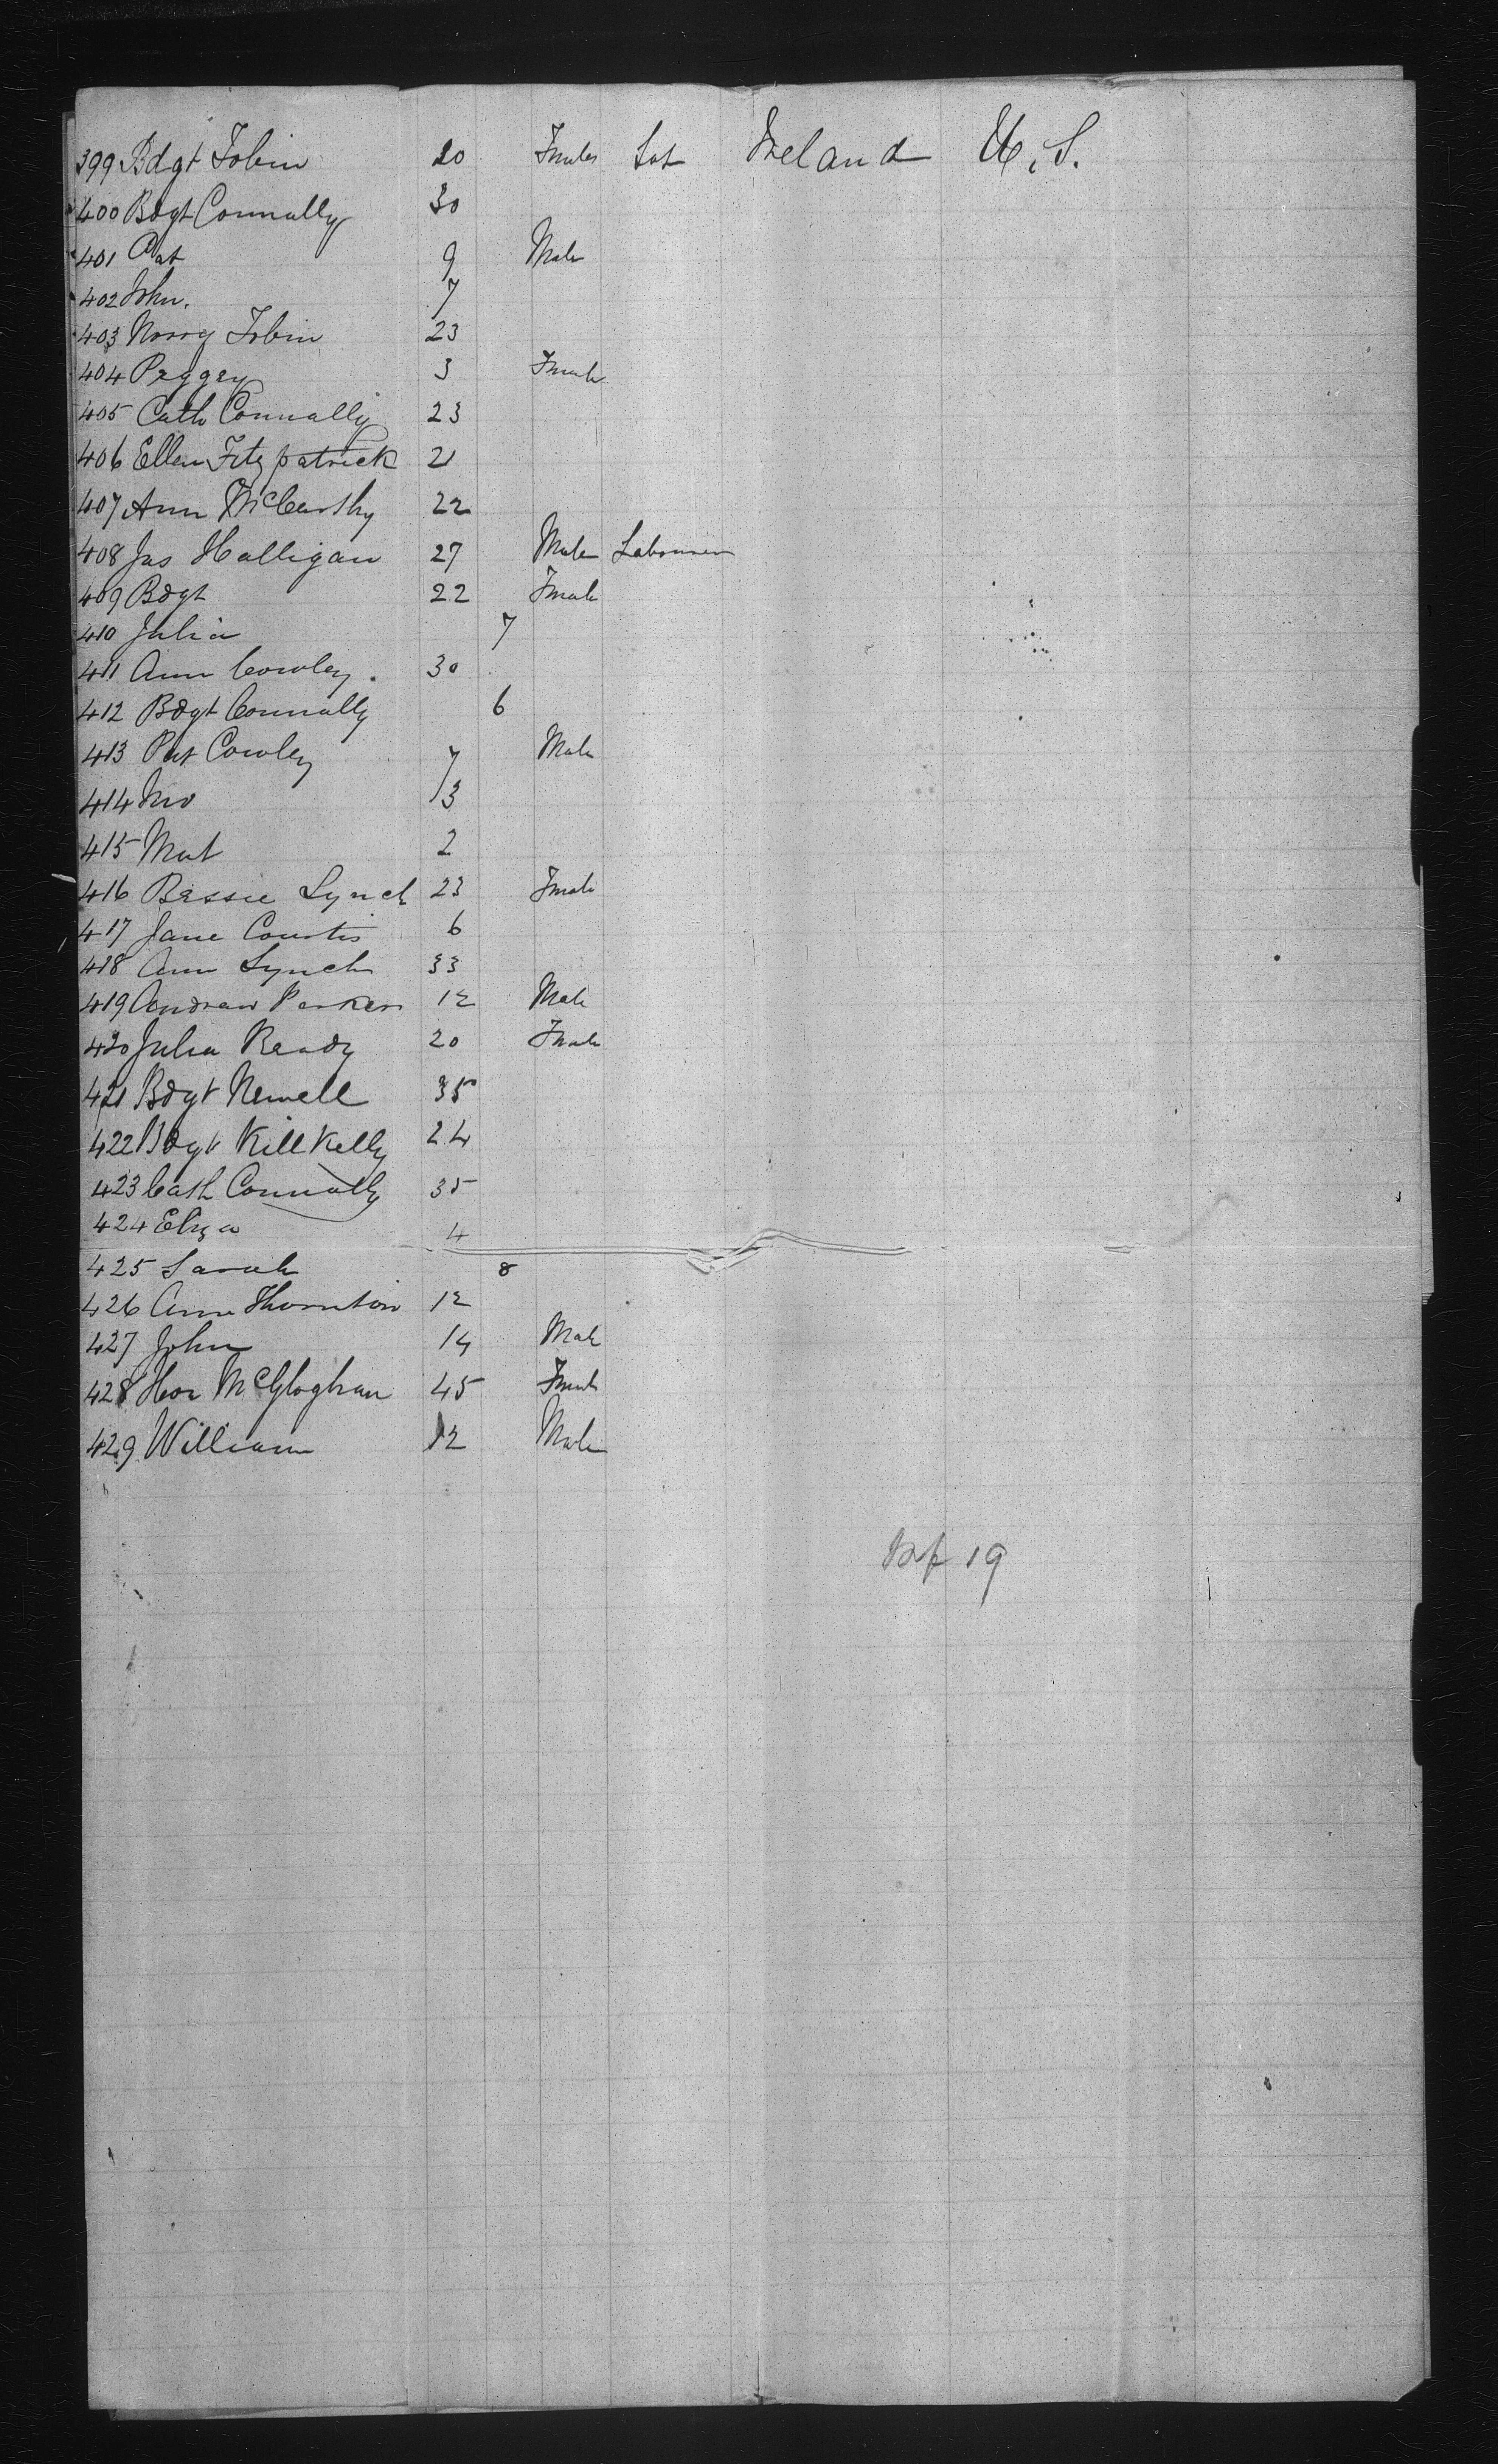 399 Bdgt Tobin 20 Female Lab Ireland U.S.
400 Bdgt Connally 30
401 Pat 9 Male
402 John. 7
403 Norry Tobin 23
404 Peggey 3 Female
405 Cath Connally 23
406 Ellen Fitzpatrick 21
407 Ann McCarthy 22
408 Jas Halligan 27 Male Labourer
409 Bdgt 22 Female
410 Julia 7
411 Ann Cowley. 30
412 Bdgt Connally 6
413 Pat Cowley 7 Male
414 Jno 3
415 Mat 2
416 Bessie Lynch 23 Female
417 Jane Courtis 6
418 Ann Lynch 33
419 Andrew Parker 12 Male
420 Julia Ready 20 Female
421 Bdgt Newell 35
422 Bdgt Killkelly 24
423 Cath Connolly 35
424 Eliza 4
425 Sarah 8
426 Ann Thornton 12
427 John 14 Male
428 Hor McGloghan 45 Female
429 William 12 Male
Inf 19